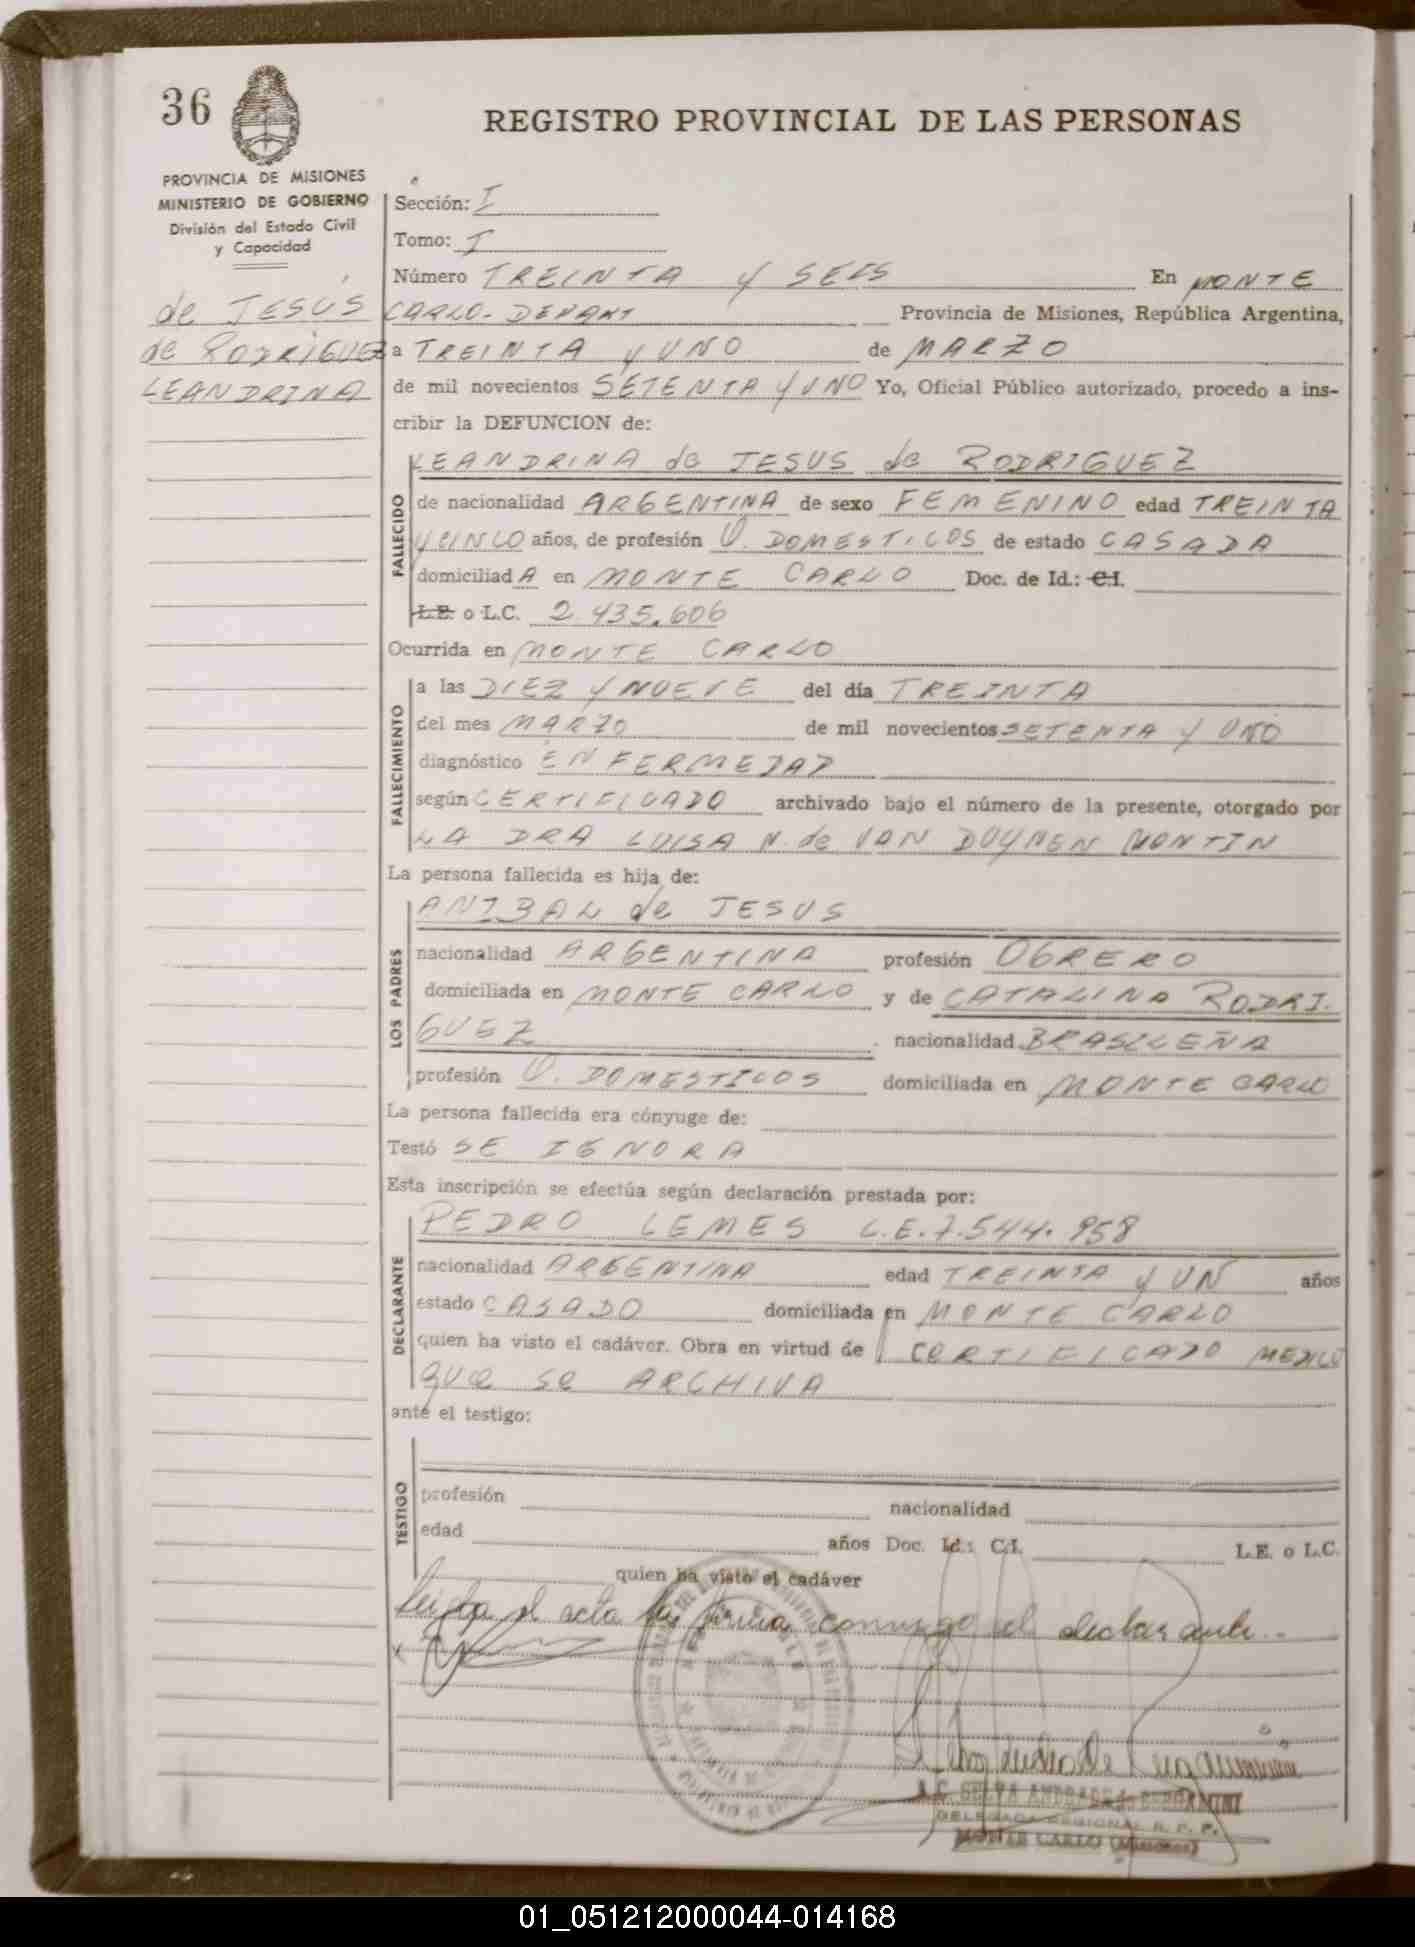 36
REGISTRO PROVINCIAL DE LAS PERSONAS
PROVINCIA DE MISIONES
MINISTERIO DE GOBIERNO
División del Estado Civil
y Capacidad
de JESÚS
de RODRIGUEZ
LEANDRINA
Sección: I
Tomo: I
Número TREINTA Y SEIS En MONTE
CARLO. Provincia de Misiones, República Argentina,
a TREINTA y UNO de MARZO
de mil novecientos SETENTA Y UNO Yo, Oficial Público autorizado, procedo a ins-
cribir la DEFUNCION de:
FALLECIDO
LEANDRINA de JESUS de RODRIGUEZ
de nacionalidad ARGENTINA de sexo FEMENINO edad TREINTA
Y CINCO años, de profesión Q. DOMESTICOS de estado CASADA
domiciliadA en MONTE CARLO Doc. de Id.: C.I.
L.E. o L.C. 2.435.606
Ocurrida en MONTE CARLO
FALLECIMIENTO
a las DIEZ Y NUEVE del día TREINTA
del mes MARZO de mil novecientos SETENTA Y UNO
diagnóstico ENFERMEDAD
según CERTIFICADO archivado bajo el número de la presente, otorgado por
LA DRA LUISA N. de VAN DUYNEN MONTIN
La persona fallecida es hija de:
LOS PADRES
ANIBAL de JESUS
nacionalidad ARGENTINA profesión OBRERO
domiciliada en MONTE CARLO y de CATALINA RODRI.
GUEZ nacionalidad BRASILEÑA
profesión Q. DOMESTICOS domiciliada en MONTE CARLO
La persona fallecida era cónyuge de:
Testó SE IGNORA
Esta inscripción se efectúa según declaración prestada por:
DECLARANTE
PEDRO LEMES L.E. 7.544.958
nacionalidad ARGENTINA edad TREINTA Y UN años
estado CASADO domiciliada en MONTE CARLO
quien ha visto el cadáver. Obra en virtud de CERTIFICADO MEDICO
que se ARCHIVA
ante el testigo:
TESTIGO
profesión nacionalidad
edad años Doc. Id.: C.I. L.E. o L.C.
quien ha visto el cadáver
Leída el acta la firma conmigo el declarante.-
SELVA ANDRADE
DELEGADA REGIONAL R. P. P.
MONTE CARLO (Misiones)
01_051212000044-014168